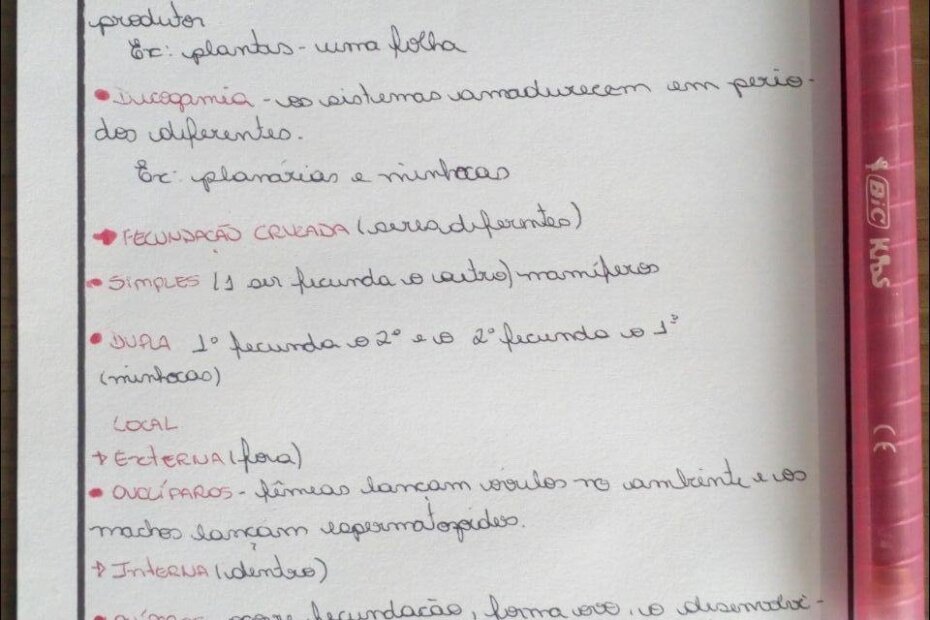 produtor
Ex: plantas - uma folha
• Dicogamia - os sistemas amadurecem em perio-
dos diferentes.
Ex: planárias e minhocas
→ FECUNDAÇÃO CRUZADA (seres diferentes)
• SIMPLES (1 ser fecunda o outro) mamíferos
• DUPLA 1º fecunda o 2º e o 2º fecunda o 1º
(minhocas)
LOCAL
→ EXTERNA (fora)
• OVULÍPAROS - fêmeas lançam óvulos no ambiente e os
machos lançam espermatozoides.
→ INTERNA (dentro)
fecundação, forma ovo, o desenvolvi-
BIC Kids
CE